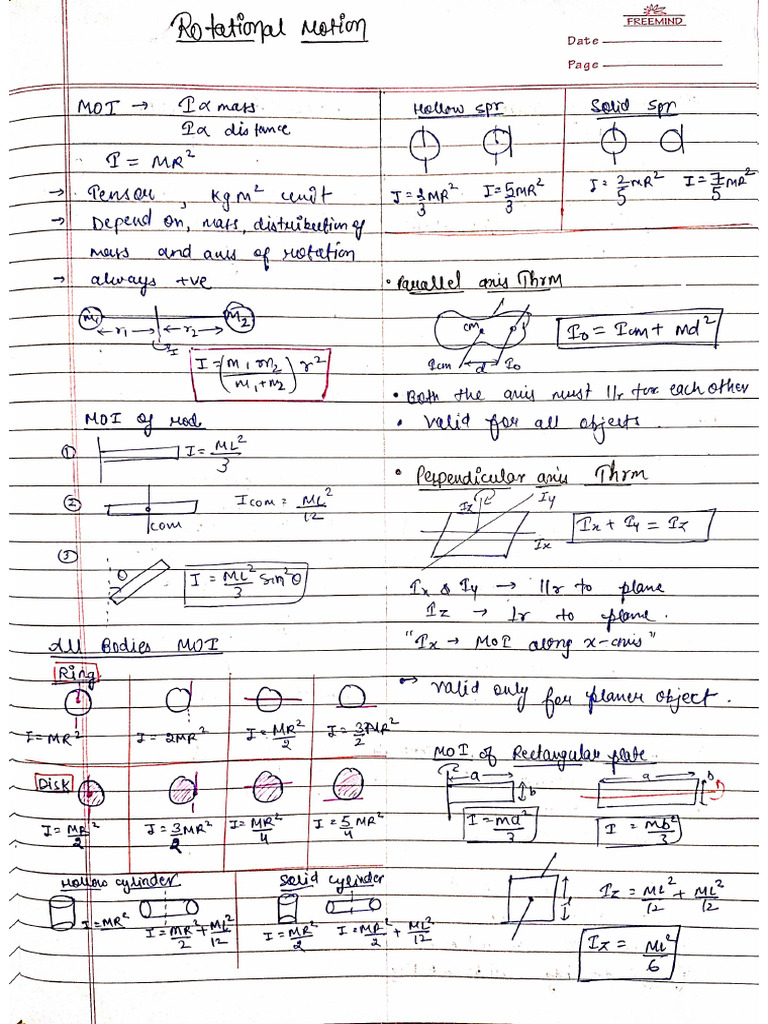 Rotational Motion
FREEMIND
Date
Page
MOI → I α mass
I α distance
I = MR²
→ Tensor, kgm² unit
→ Depend on, mass, distribution of
mass and axis of rotation
→ always +ve
m₁ m₂
r₁ r₂
I
I = (m₁m₂/m₁+m₂) r²
MOI of rod
① I = ML²/3
② Icom = ML²/12
com
③ θ I = ML²/3 Sin²θ
All Bodies MOI
Ring
I = MR² I = 2MR² I = MR²/2 I = 3/2 MR²
Disk
I = MR²/2 I = 3MR²/2 I = MR²/4 I = 5/4 MR²
Hollow cylinder
I = MR² I = MR²/2 + ML²/12
Solid cylinder
I = MR²/2 I = MR²/2 + ML²/12
Hollow spr
I = 2/3 MR² I = 5/3 MR²
Solid spr
I = 2/5 MR² I = 7/5 MR²
• Parallel axis Thrm
cm
Icm d I₀
I₀ = Icm + md²
• Both the axis must llr for each other
• valid for all objects.
• Perpendicular axis Thrm
Iz Iy
Ix
Ix + Iy = Iz
Ix & Iy → llr to plane
Iz → ⊥r to plane.
"Ix → MOI along x-axis"
→ valid only for planer object.
MOI of Rectangular plate
a b
I = ma²/3
a b
I = mb²/3
Iz = ML²/12 + ML²/12
Iz = ML²/6